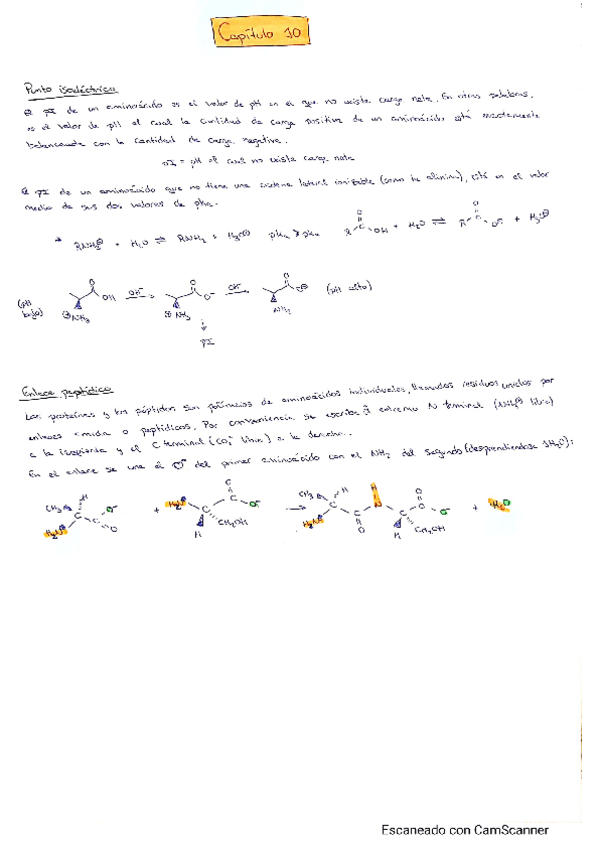 Capítulo 10
Punto isoeléctrico
El pI de un aminoácido es el valor de pH en el que no existe carga neta. En otras palabras,
es el valor de pH al cual la cantidad de carga positiva de un aminoácido está exactamente
balanceada con la cantidad de carga negativa.
pI = pH al cual no existe carga neta
El pI de un aminoácido que no tiene una cadena lateral ionizable (como la alanina), está en el valor
medio de sus dos valores de pka.
RNH3⊕ + H2O ⇌ RNH2 + H3O⊕ pka > pka R C O OH + H2O ⇌ R C O O⁻ + H3O⊕
(pH bajo) O OH ⊕NH3 OH⁻ O O⁻ ⊕NH3 OH⁻ O O⊖ NH2 (pH alto)
pI
Enlace peptídico
Las proteínas y los péptidos son polímeros de aminoácidos individuales, llamados residuos unidos por
enlaces amida o peptídicos. Por conveniencia se escribe el extremo N terminal (NH3⊕ libre)
a la izquierda y el C terminal (CO2⁻ libre) a la derecha.
En el enlace se une el O⁻ del primer aminoácido con el NH3 del segundo (desprendiéndose 1H2O):
CH3 H C C O⁻ O H3N⊕ + H3N⊕ C C O O⁻ CH2OH H → CH3 H C H3N⊕ C O N H C H CH2OH C O O⁻ + H2O
Escaneado con CamScanner